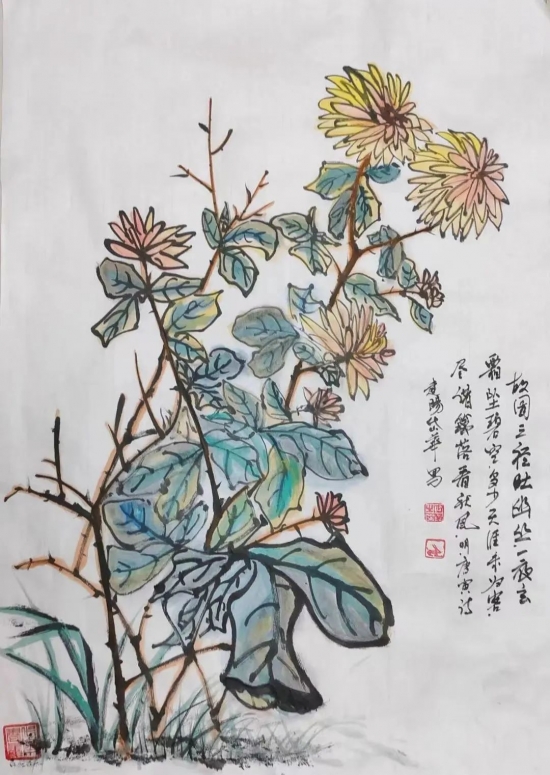 故园三径吐幽丛一夜玄
霜坠碧空多少天涯未归客
尽借篱落看秋风 明唐寅诗
华写